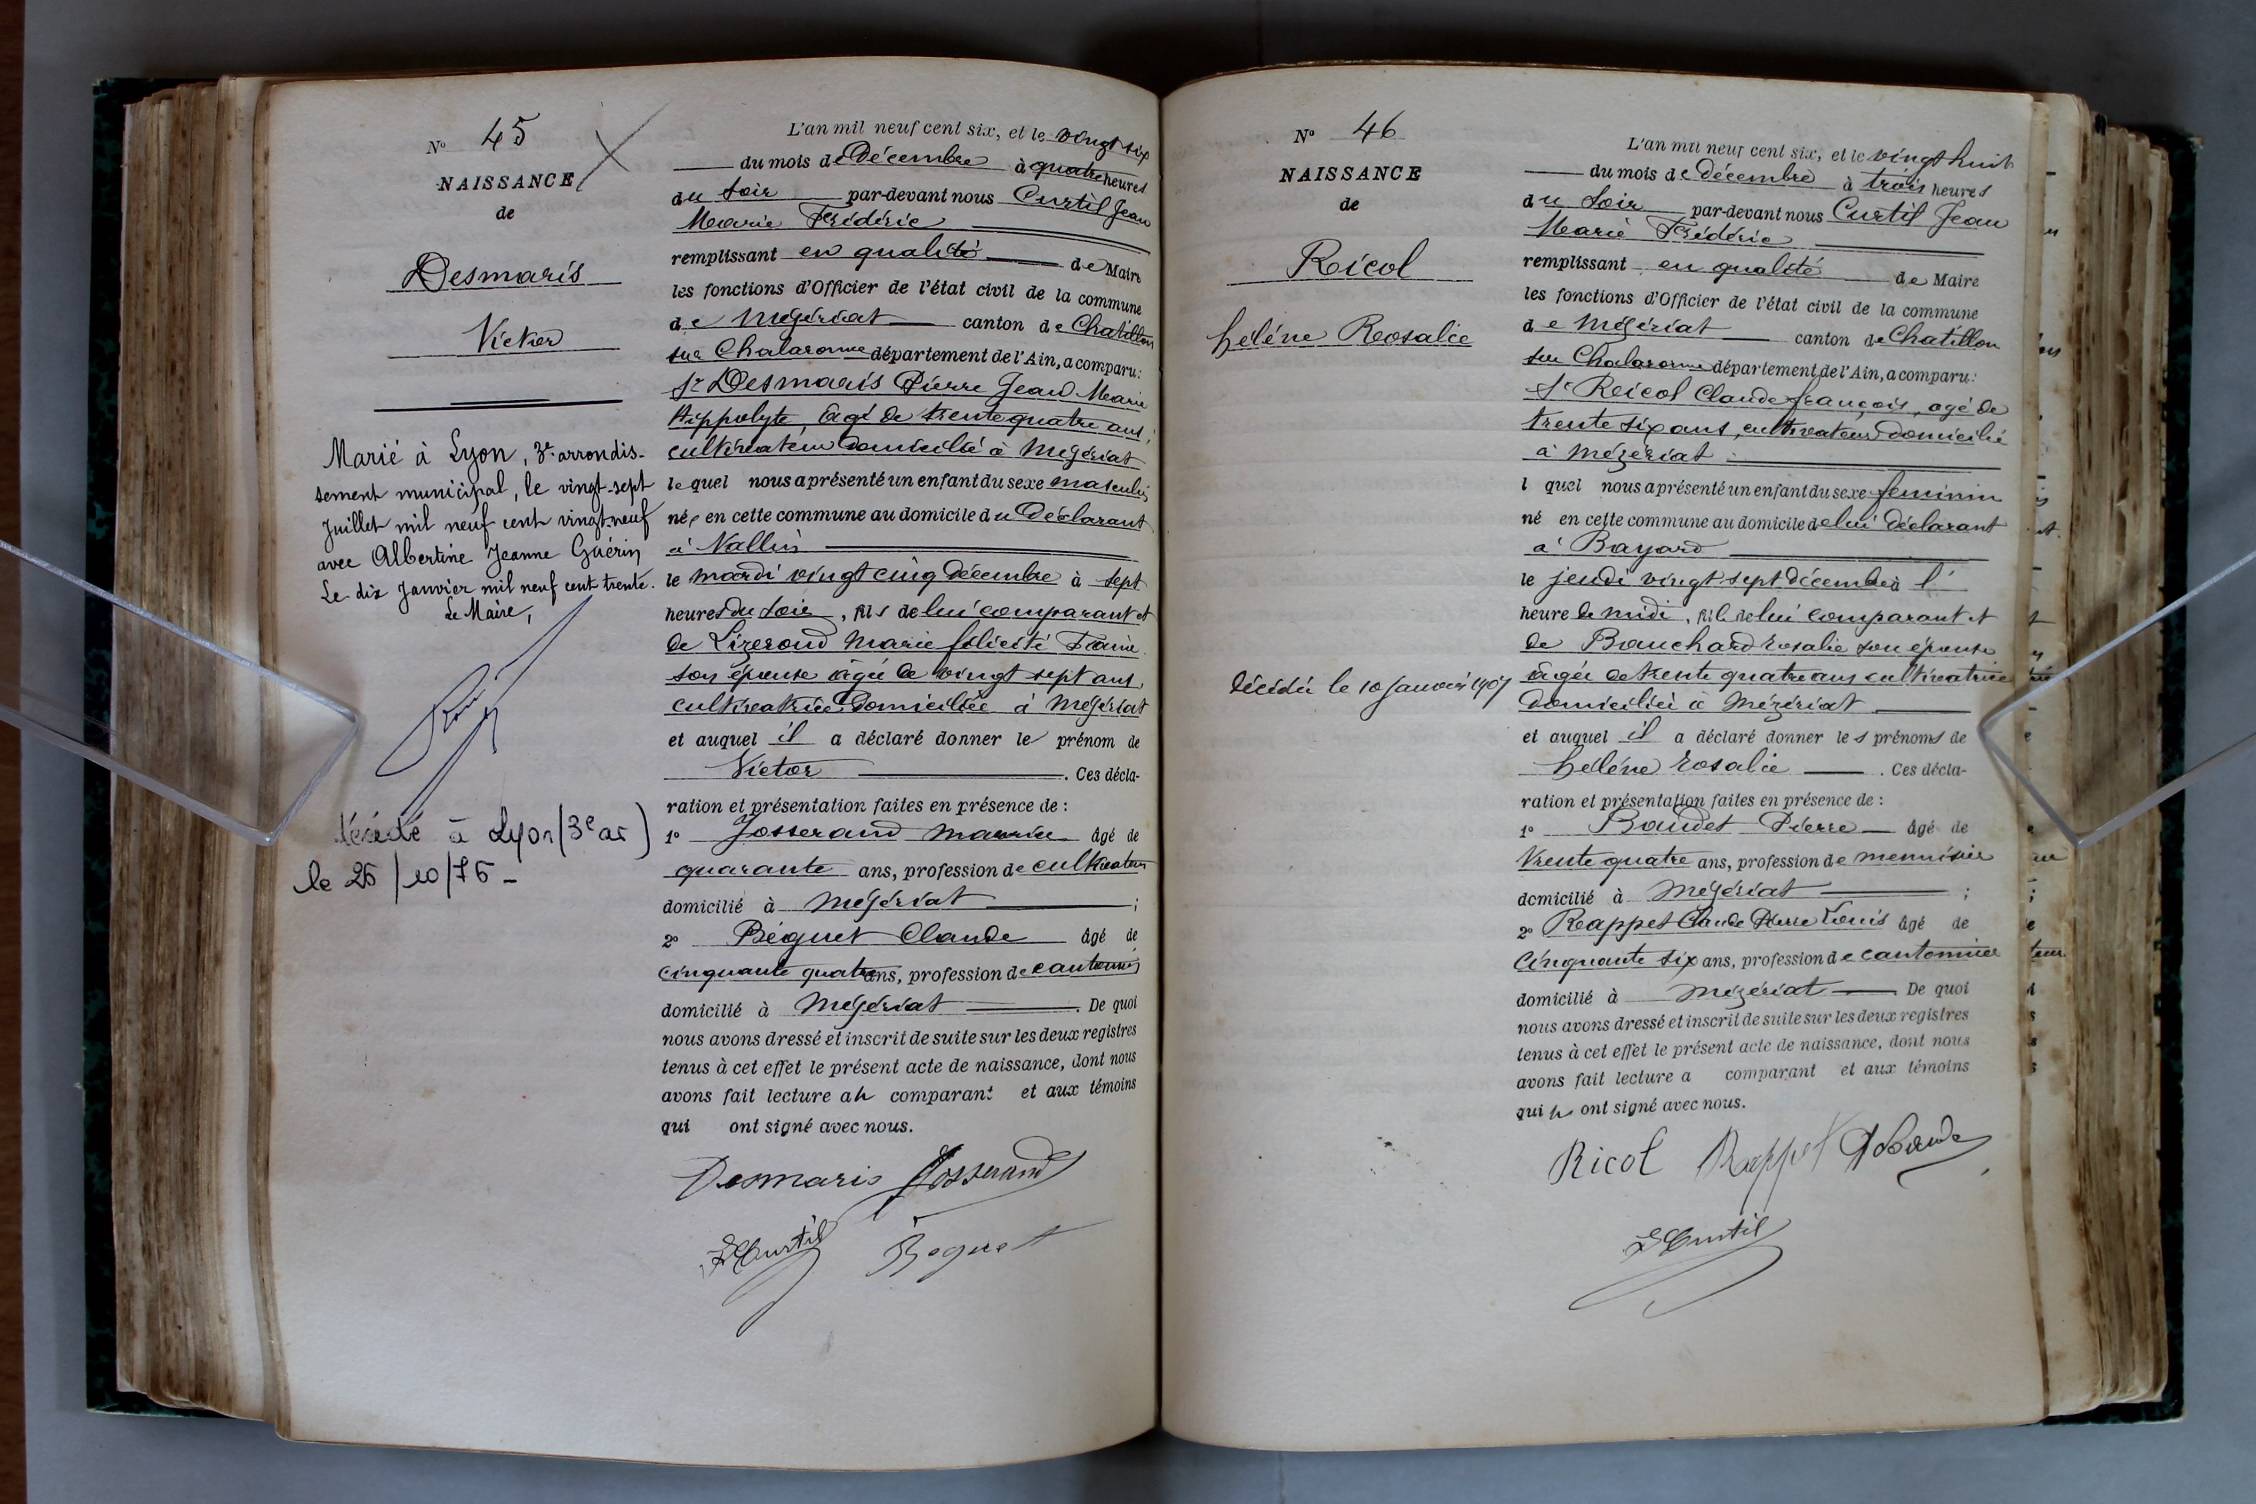 N° 45
NAISSANCE
de
Desmaris
Victor
Marié à Lyon, 3e arrondis-
sement municipal, le vingt-sept
Juillet mil neuf cent vingt-neuf
avec Albertine Jeanne Guérin
Le dix Janvier mil neuf cent trente.
Le Maire,
décédé à Lyon (3e ar)
le 25/10/76 -
L'an mil neuf cent six, et le vingt six
du mois de Décembre à quatre heures
du soir par-devant nous Curtil Jean
Marie Frédéric
remplissant en qualité de Maire
les fonctions d'Officier de l'état civil de la commune
de Mézériat canton de Chatillon
sur Chalaronne département de l'Ain, a comparu:
Sr Desmaris Pierre Jean Marie
Hippolyte, âgé de trente quatre ans,
cultivateur domicilié à Mézériat
lequel nous a présenté un enfant du sexe masculin
né, en cette commune au domicile du Déclarant
à Vallin
le mardi vingt cinq décembre à sept
heures du soir, fils de lui comparant et
de Lizerond Marie félicité
son épouse âgée de vingt sept ans,
cultivatrice domiciliée à Mézériat
et auquel il a déclaré donner le prénom de
Victor. Ces décla-
ration et présentation faites en présence de :
1° Josserand Maurice âgé de
quarante ans, profession de cultivateur
domicilié à Mézériat ;
2° Réguet Claude âgé de
cinquante quatre ans, profession de cantonnier
domicilié à Mézériat. De quoi
nous avons dressé et inscrit de suite sur les deux registres
tenus à cet effet le présent acte de naissance, dont nous
avons fait lecture au comparant et aux témoins
qui ont signé avec nous.
Desmaris Josserand
Curtil Reguet
N° 46
NAISSANCE
de
Ricol
hélène Rosalie
décédée le 10 Janvier 1907
L'an mil neuf cent six, et le vingt huit
du mois de décembre à trois heures
du soir par-devant nous Curtil Jean
Marie Frédéric
remplissant en qualité de Maire
les fonctions d'Officier de l'état civil de la commune
de Mézériat canton de Chatillon
sur Chalaronne département de l'Ain, a comparu:
Sr Ricol Claude françois, agé de
trente six ans, cultivateur domicilié
à Mézériat
l quel nous a présenté un enfant du sexe féminin
né en cette commune au domicile de lui déclarant
à Bayard
le jeudi vingt sept décembre à l'
heure de midi, fil de lui comparant et
de Bouchard rosalie son épouse
âgée de trente quatre ans cultivatrice
domiciliée à Mézériat
et auquel il a déclaré donner les prénoms de
hélène rosalie. Ces décla-
ration et présentation faites en présence de :
1° Baudet Pierre âgé de
trente quatre ans, profession de menuisier
domicilié à Mézériat ;
2° Rappet Claude Pierre Louis âgé de
Cinquante six ans, profession de cantonnier
domicilié à Mézériat. De quoi
nous avons dressé et inscrit de suite sur les deux registres
tenus à cet effet le présent acte de naissance, dont nous
avons fait lecture a comparant et aux témoins
qui ont signé avec nous.
Ricol Rappet
Curtil